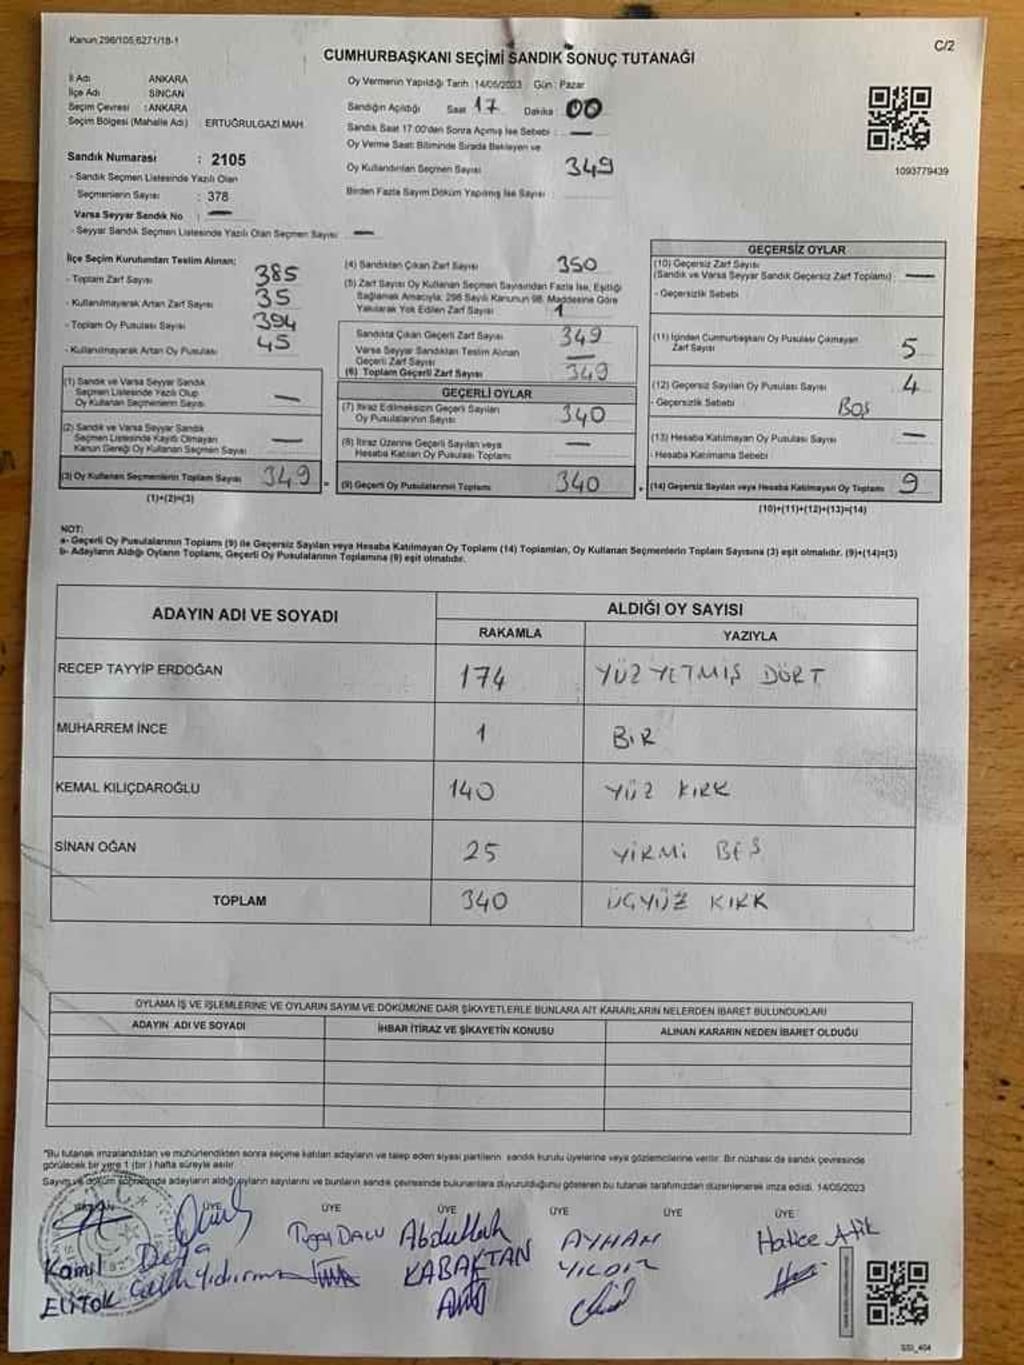 Kanun:296/105,6271/18-1
C/2
CUMHURBAŞKANI SEÇİMİ SANDIK SONUÇ TUTANAĞI
İl Adı ANKARA
İlçe Adı SİNCAN
Seçim Çevresi : ANKARA
Seçim Bölgesi (Mahalle Adı) : ERTUĞRULGAZİ MAH.
Sandık Numarası : 2105
- Sandık Seçmen Listesinde Yazılı Olan
Seçmenlerin Sayısı : 378
Varsa Seyyar Sandık No : —
- Seyyar Sandık Seçmen Listesinde Yazılı Olan Seçmen Sayısı —
Oy Vermenin Yapıldığı Tarih : 14/05/2023 Gün : Pazar
Sandığın Açıldığı Saat 17 Dakika : 00
Sandık Saat 17:00'den Sonra Açılmış İse Sebebi : —
Oy Verme Saati Bitiminde Sırada Bekleyen ve
Oy Kullandırılan Seçmen Sayısı 349
Birden Fazla Sayım Döküm Yapılmış İse Sayısı :
1093779439
İlçe Seçim Kurulundan Teslim Alınan;
- Toplam Zarf Sayısı 385
- Kullanılmayarak Artan Zarf Sayısı 35
- Toplam Oy Pusulası Sayısı 394
- Kullanılmayarak Artan Oy Pusulası 45
(1) Sandık ve Varsa Seyyar Sandık
Seçmen Listesinde Yazılı Olup
Oy Kullanan Seçmenlerin Sayısı —
(2) Sandık ve Varsa Seyyar Sandık
Seçmen Listesinde Kayıtlı Olmayan
Kanun Gereği Oy Kullanan Seçmen Sayısı —
(3) Oy Kullanan Seçmenlerin Toplam Sayısı 349
(1)+(2)=(3)
(4) Sandıktan Çıkan Zarf Sayısı 350
(5) Zarf Sayısı Oy Kullanan Seçmen Sayısından Fazla İse, Eşitliği
Sağlamak Amacıyla; 298 Sayılı Kanunun 98. Maddesine Göre
Yakılarak Yok Edilen Zarf Sayısı 1
Sandıkta Çıkan Geçerli Zarf Sayısı 349
Varsa Seyyar Sandıktan Teslim Alınan
Geçerli Zarf Sayısı —
(6) Toplam Geçerli Zarf Sayısı 349
GEÇERLİ OYLAR
(7) İtiraz Edilmeksizin Geçerli Sayılan
Oy Pusulalarının Sayısı 340
(8) İtiraz Üzerine Geçerli Sayılan veya
Hesaba Katılan Oy Pusulası Toplamı —
(9) Geçerli Oy Pusulalarının Toplamı 340
GEÇERSİZ OYLAR
(10) Geçersiz Zarf Sayısı
(Sandık ve Varsa Seyyar Sandık Geçersiz Zarf Toplamı) —
- Geçersizlik Sebebi
(11) İçinden Cumhurbaşkanı Oy Pusulası Çıkmayan
Zarf Sayısı 5
(12) Geçersiz Sayılan Oy Pusulası Sayısı 4
- Geçersizlik Sebebi BOŞ
(13) Hesaba Katılmayan Oy Pusulası Sayısı —
- Hesaba Katılmama Sebebi
(14) Geçersiz Sayılan veya Hesaba Katılmayan Oy Toplamı 9
(10)+(11)+(12)+(13)=(14)
NOT:
a- Geçerli Oy Pusulalarının Toplamı (9) ile Geçersiz Sayılan veya Hesaba Katılmayan Oy Toplamı (14) Toplamları, Oy Kullanan Seçmenlerin Toplam Sayısına (3) eşit olmalıdır. (9)+(14)=(3)
b- Adayların Aldığı Oyların Toplamı, Geçerli Oy Pusulalarının Toplamına (9) eşit olmalıdır.
ADAYIN ADI VE SOYADI ALDIĞI OY SAYISI
RAKAMLA YAZIYLA
RECEP TAYYİP ERDOĞAN 174 YÜZ YETMİŞ DÖRT
MUHARREM İNCE 1 BİR
KEMAL KILIÇDAROĞLU 140 YÜZ KIRK
SİNAN OĞAN 25 YİRMİ BEŞ
TOPLAM 340 ÜÇYÜZ KIRK
OYLAMA İŞ VE İŞLEMLERİNE VE OYLARIN SAYIM VE DÖKÜMÜNE DAİR ŞİKAYETLERLE BUNLARA AİT KARARLARIN NELERDEN İBARET BULUNDUKLARI
ADAYIN ADI VE SOYADI İHBAR İTİRAZ VE ŞİKAYETİN KONUSU ALINAN KARARIN NEDEN İBARET OLDUĞU
"Bu tutanak imzalandıktan ve mühürlendikten sonra seçime katılan adayların ve talep eden siyasi partilerin sandık kurulu üyelerine veya gözlemcilerine verilir. Bir nüshası da sandık çevresinde
görülecek bir yere 1 (bir) hafta süreyle asılır.
Sayım ve döküm sonucunda adayların aldığı oyların sayılarını ve bunların sandık çevresinde bulunanlara duyurulduğunu gösteren bu tutanak tarafımızdan düzenlenerek imza edildi. 14/05/2023
ÜYE ÜYE ÜYE ÜYE ÜYE ÜYE
Kamil Derya DALU Abdullah AYHAN Hatice Atik
ELİTOK Yıldırım KABAKTAN YILDIZ